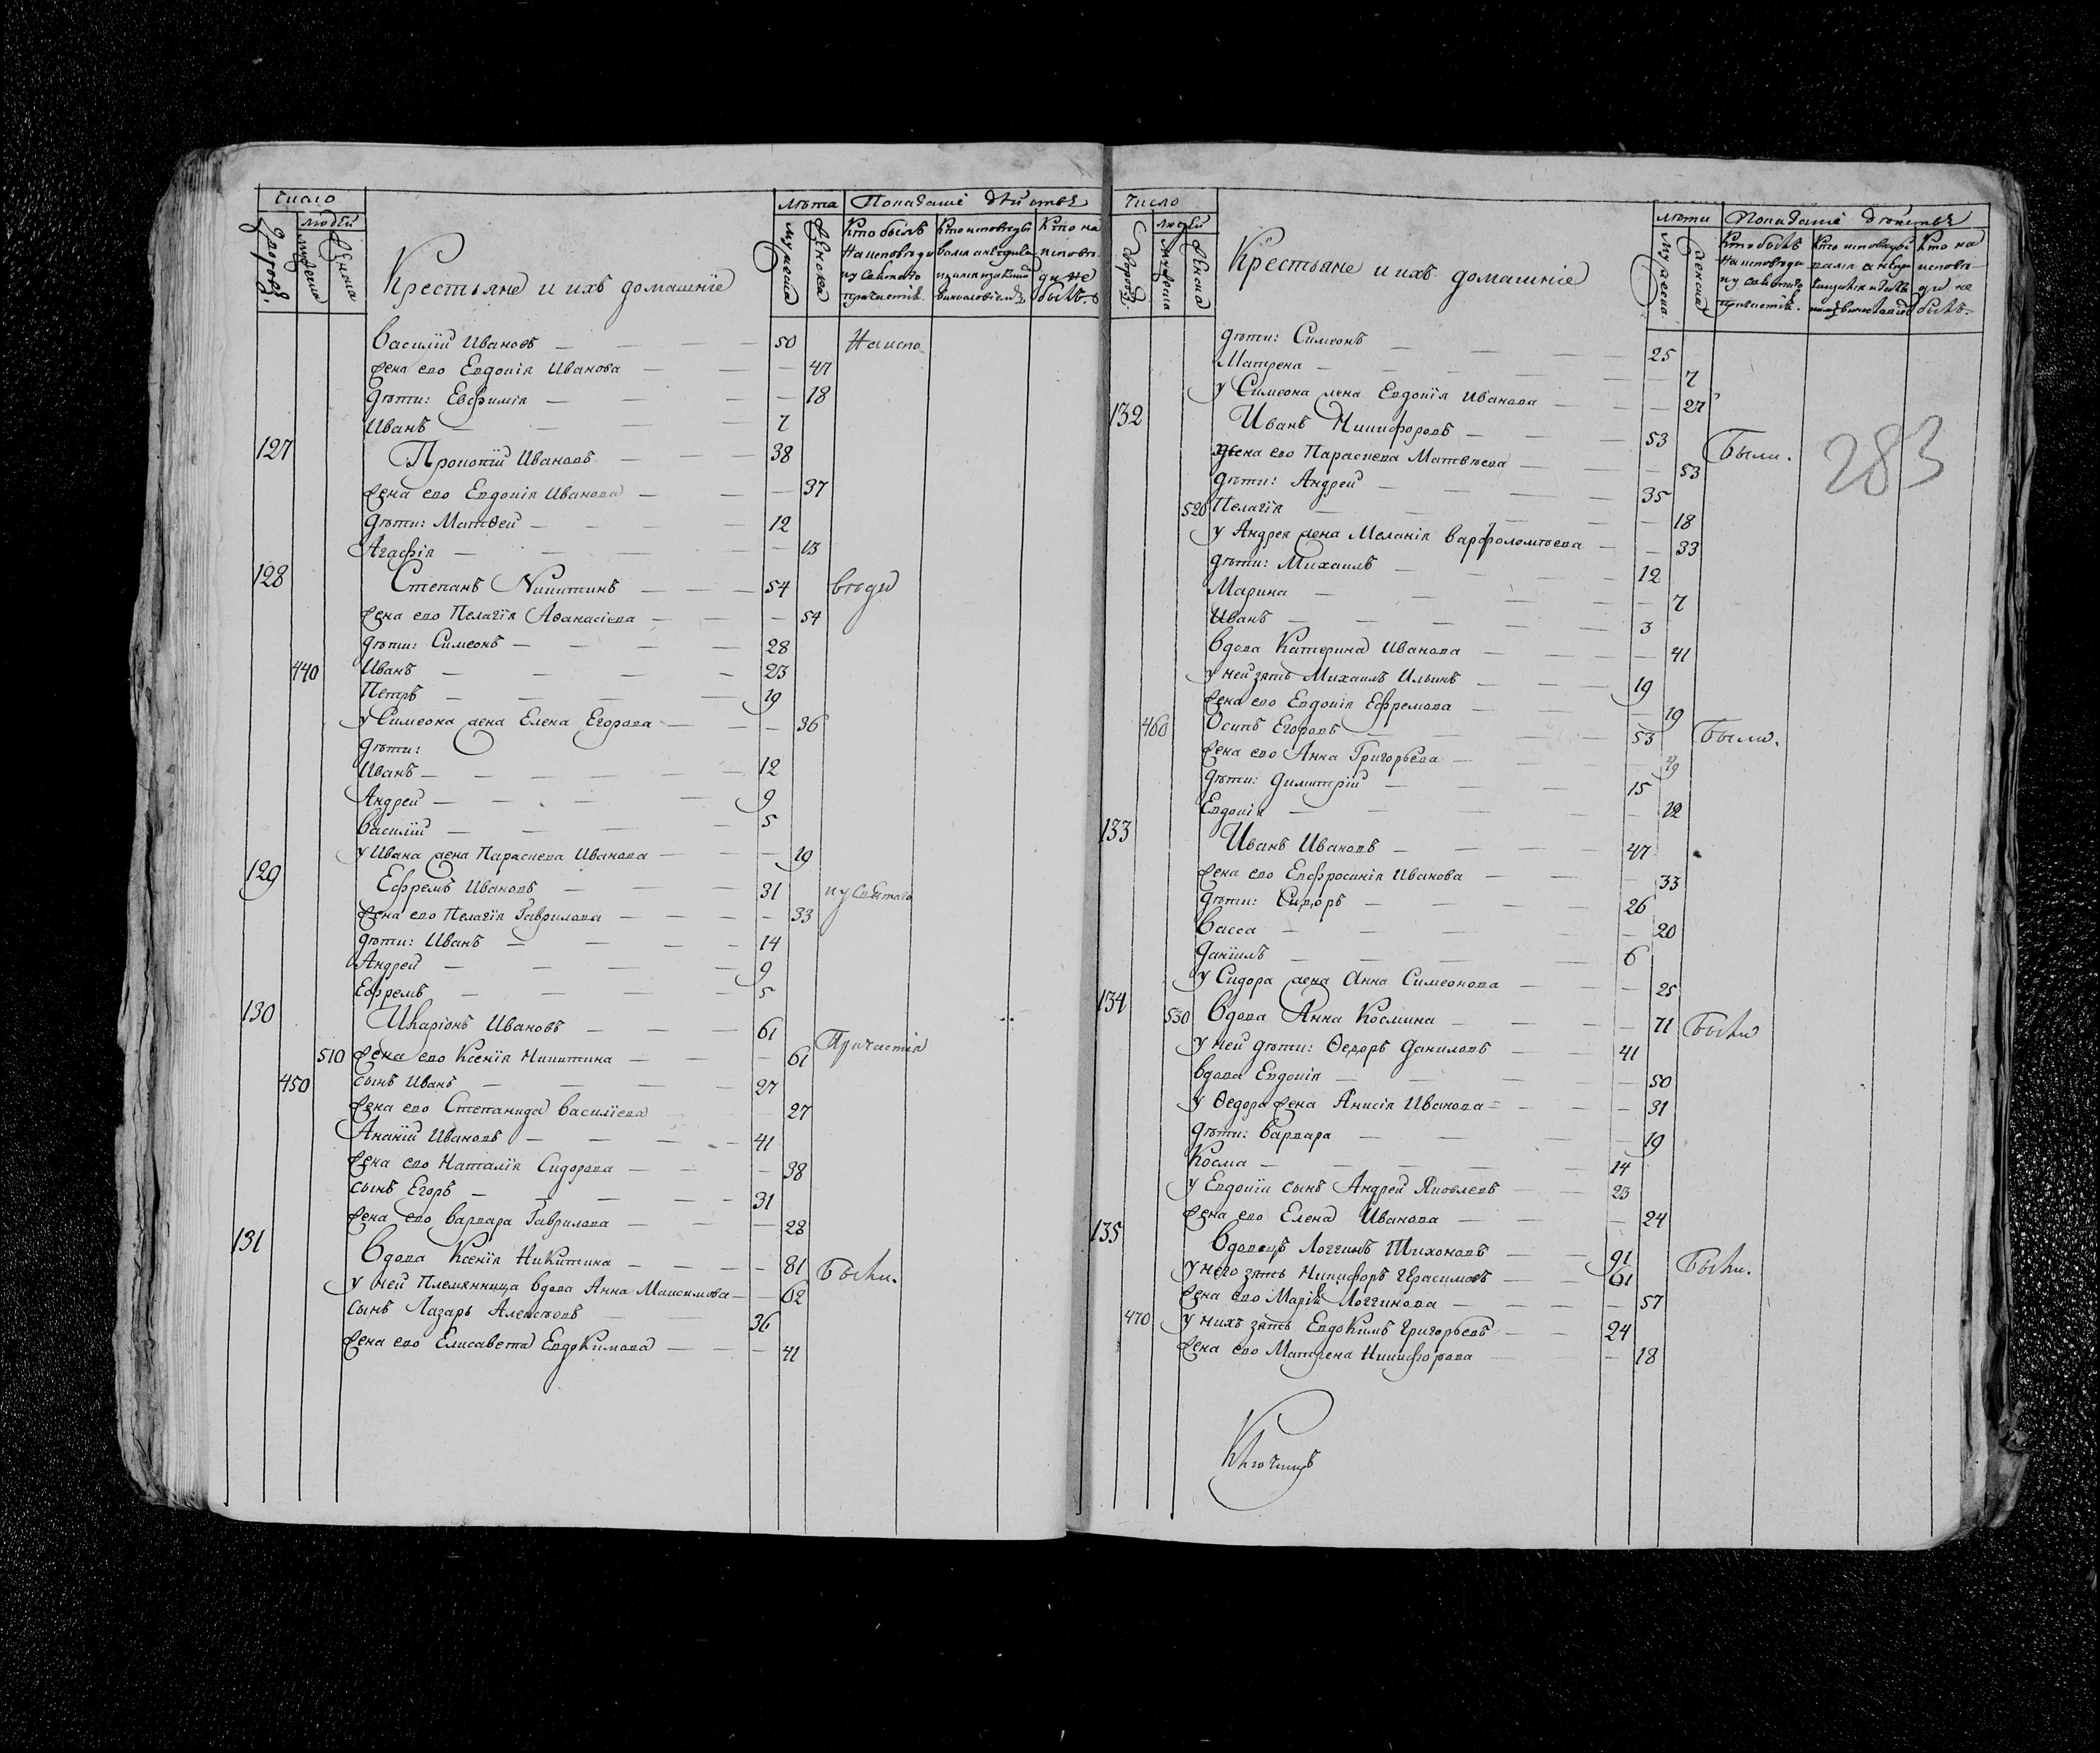 число
лѣта Показанiе дѣйства
людей
дворовъ. мужеска женска
мужеска женска
Кто былъ на исповѣди и у святаго причастiя.
Кто на исповѣди не былъ.
Крестьяне и ихъ домашнiе
Василiй Ивановъ — 50 На испо
жена его Евдокiя Иванова — 47
дѣти: Евфимiя — 18
Иванъ — 7
127 Прокопiй Ивановъ — 38
жена его Евдокiя Иванова — 37
дѣти: Матвей — 12
Агафiя — 13
128 Степанъ Никитинъ — 54 вѣди
жена его Пелагiя Афанасiева — 54
дѣти: Симеонъ — 28
440 Иванъ — 23
Петръ — 19
у Симеона жена Елена Егорова — 36
дѣти:
Иванъ — 12
Андрей — 9
Василiй — 5
у Ивана жена Параскева Иванова — 19
129 Ефремъ Ивановъ — 31 и у святаго
жена его Пелагiя Гаврилова — 33
дѣти: Иванъ — 14
Андрей — 9
Ефремъ — 5
130 Иларiонъ Ивановъ — 61 Причастiя
510 жена его Ксенiя Никитина — 61
450 сынъ Иванъ — 27
жена его Степанида Василiева — 27
Ананiй Ивановъ — 41
жена его Наталiя Сидорова — 38
сынъ Егоръ — 31
жена его Варвара Гаврилова — 28
131 Вдова Ксенiя Никитина — 81 Были.
у ней Племянница вдова Анна Максимова — 62
сынъ Лазарь Алексѣевъ — 36
жена его Елисавета Евдокимова — 41
число
лѣта Показанiе дѣйства
людей
дворовъ. мужеска женска
мужеска женска
Кто былъ на исповѣди и у святаго причастiя.
Кто на исповѣди не былъ.
Крестьяне и ихъ домашнiе
дѣти: Симеонъ — 25
Матрена — 7
у Симеона жена Евдокiя Иванова — 27
132 Иванъ Никифоровъ — 53 Были.
283
жена его Параскева Матвѣева — 53
дѣти: Андрей — 35
520 Пелагiя — 18
у Андрея жена Меланiя Варфоломѣева — 33
дѣти: Михаилъ — 12
Марина — 7
Иванъ — 3
вдова Катерина Иванова — 41
у ней зять Михаилъ Ильинъ — 19
жена его Евдокiя Ефремова — 19
460 Осипъ Егоровъ — 53 Были.
жена его Анна Григорьева — 49
дѣти: Димитрiй — 15
Евдокiя — 12
133 Иванъ Ивановъ — 47
жена его Евфросинiя Иванова — 33
дѣти: Сидоръ — 26
Васса — 20
Данiилъ — 6
у Сидора жена Анна Симеонова — 25
134 530 Вдова Анна Космина — 71 Были
у ней дѣти: Ѳедоръ Даниловъ — 41
вдова Евдокiя — 50
у Ѳедора жена Анисiя Иванова — 31
дѣти: Варвара — 19
Косма — 14
у Евдокiи сынъ Андрей Яковлевъ — 23
жена его Елена Иванова — 24
135 Вдовецъ Логгинъ Тихоновъ — 91 Были.
у него зять Никифоръ Герасимовъ — 61
жена его Марiя Логгинова — 57
470 у нихъ зять Евдокимъ Григорьевъ — 24
жена его Матрена Никифорова — 18